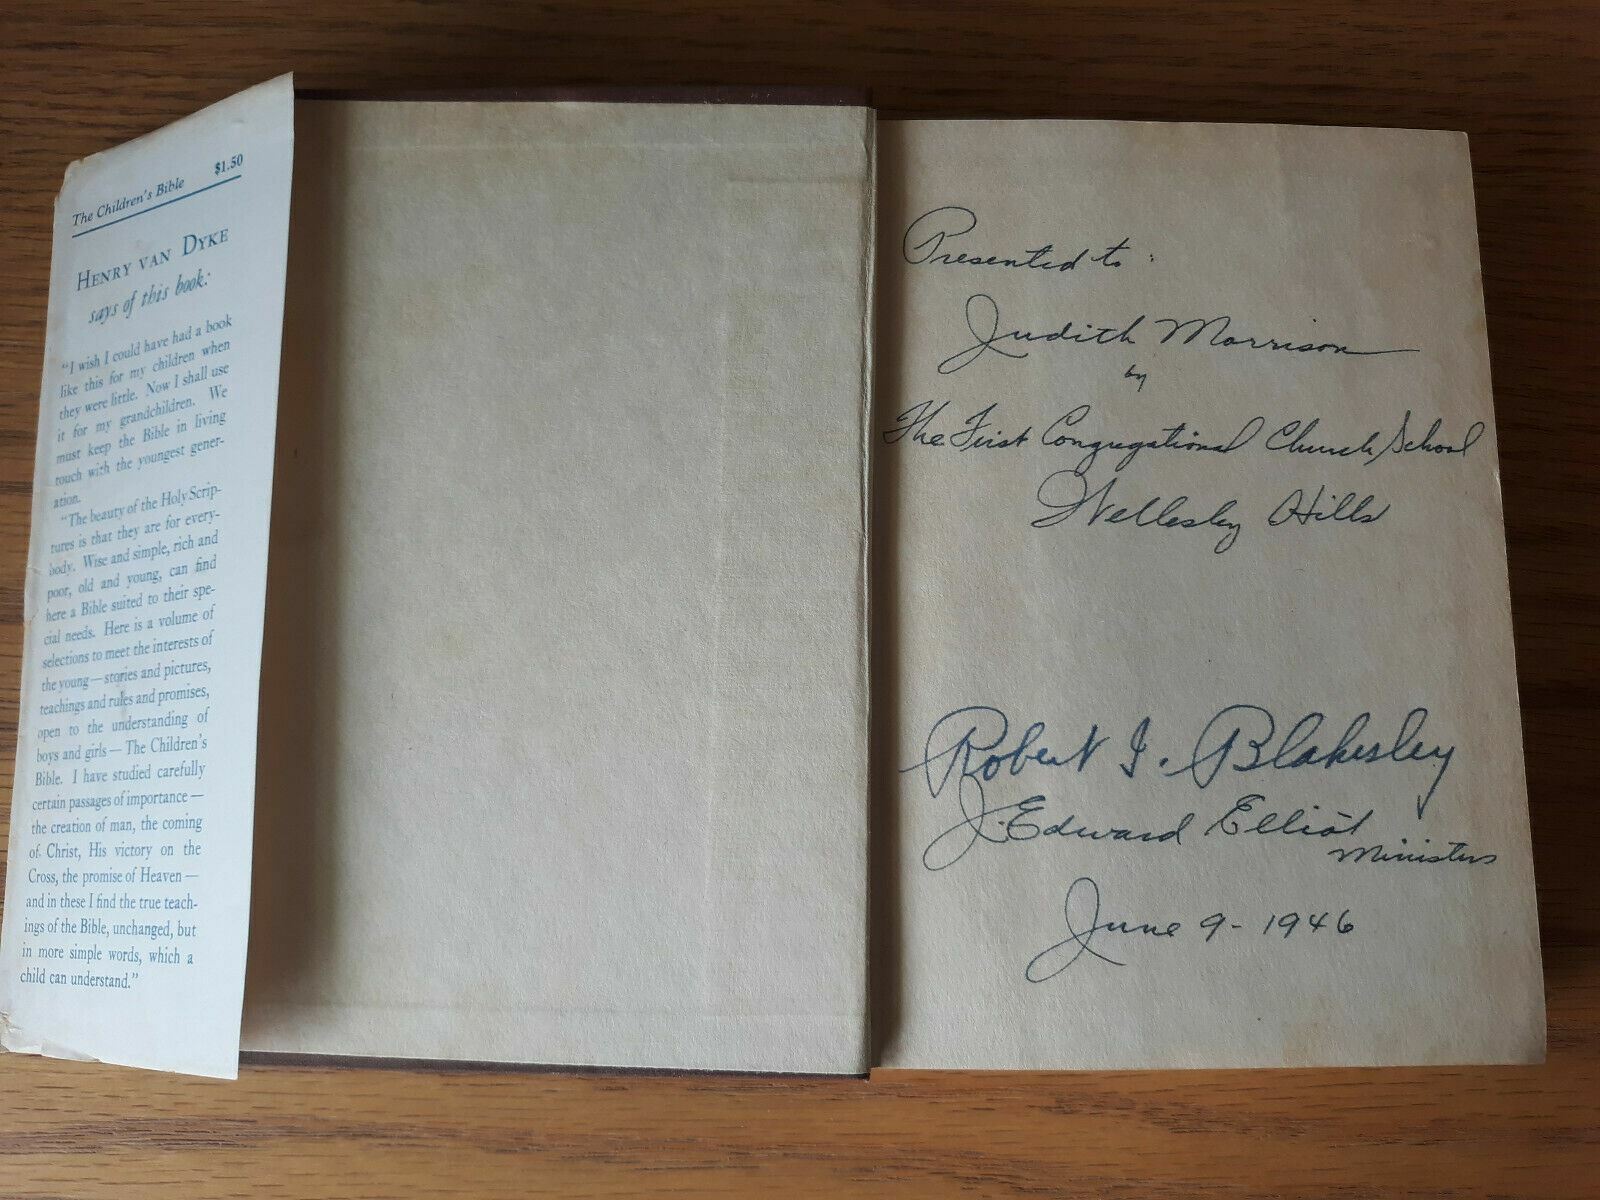 The Children's Bible $1.50
HENRY VAN DYKE
says of this book:
"I wish I could have had a book
like this for my children when
they were little. Now I shall use
it for my grandchildren. We
must keep the Bible in living
touch with the youngest gener-
ation.
"The beauty of the Holy Scrip-
tures is that they are for every-
body. Wise and simple, rich and
poor, old and young, can find
here a Bible suited to their spe-
cial needs. Here is a volume of
selections to meet the interests of
the young—stories and pictures,
teachings and rules and promises,
open to the understanding of
boys and girls—The Children's
Bible. I have studied carefully
certain passages of importance—
the creation of man, the coming
of Christ, His victory on the
Cross, the promise of Heaven—
and in these I find the true teach-
ings of the Bible, unchanged, but
in more simple words, which a
child can understand."
Presented to:
Judith Morrison
by
The First Congregational Church School
Wellesley Hills
Robert I. Blakesley
J. Edward Elliot
Ministers
June 9-1946